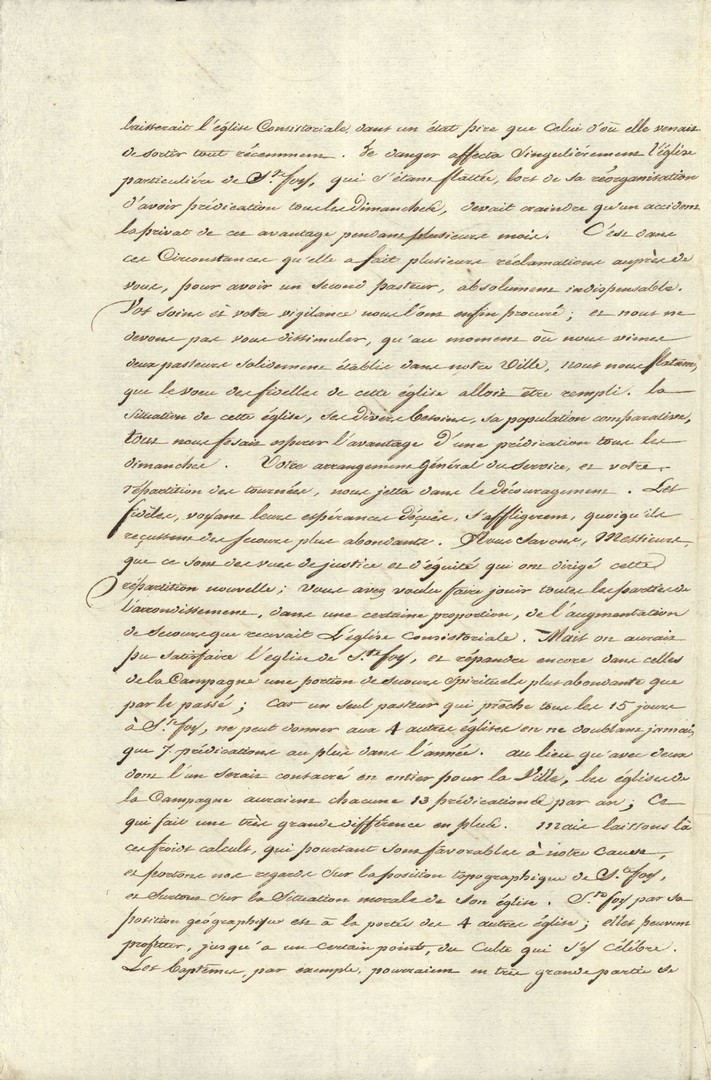 laisserait l'église Consistoriale, dans un état pire que celui d'où elle venait
de sortir tout récemment. Ce danger affecta singulièrement l'église
particulière de Ste foy, qui s'étant flattée, lors de sa réorganisation
d'avoir prédication tous les dimanches, devait craindre qu'un accident
la privat de cet avantage pendant plusieurs mois. C'est dans
ces Circonstances qu'elle a fait plusieurs réclamations auprès de
vous, pour avoir un second pasteur, absolument indispensable.
Vos soins et votre vigilance nous l'ont enfin procuré ; et nous ne
devons pas vous dissimuler, qu'au moment où nous vimes
deux pasteurs solidement établis dans notre Ville, nous nous flattam,
que le voeu des fidelles de cette église alloit être rempli. la
Situation de cette église, ses divers besoins, sa population comparative,
tout nous fesait espérer l'avantage d'une prédication tous les
dimanches. Votre arrangement Général du Service, et votre
répartition des tournées, nous jetta dans le découragement. Les
fidèles, voyant leurs espérances déçues, s'affligerent, quoiqu'ils
reçussent des secours plus abondants. Nous savons, Messieurs,
que ce sont des vues de justice et d'équité qui ont dirigé cette
répartition nouvelle ; vous avez voulu faire jouir toutes les parties de
l'arrondissement, dans une certaine proportion, de l'augmentation
de secours que recevait L'église consistoriale. Mais on aurait
pu satisfaire l'église de Ste foy, et répandre encore dans celles
de la Campagne une portion de secours Spirituels plus abondante que
par le passé ; car un seul pasteur qui prêche tous les 15 jours
à Ste foy, ne peut donner aux 4 autres églises en ne doublant jamais,
que 7. prédications au plus dans l'année. au lieu qu'avec deux
dont l'un serait consacré en entier pour la Ville, les églises de
la Campagne auraient chacune 13 prédications par an ; Ce
qui fait une très grande différence en plus. Mais laissons là
ces froids calculs, qui pourtant sont favorables à notre Cause,
et portons nos regards sur la position topographique de Ste foy,
et Surtout sur la Situation morale de Son église. Ste foy par sa
position géographique est à la portée des 4 autres église ; elles peuvent
profiter, jusqu'à un certain point, du Culte qui s'y célèbre.
Les baptêmes, par exemple, pourraient en très grande partie se